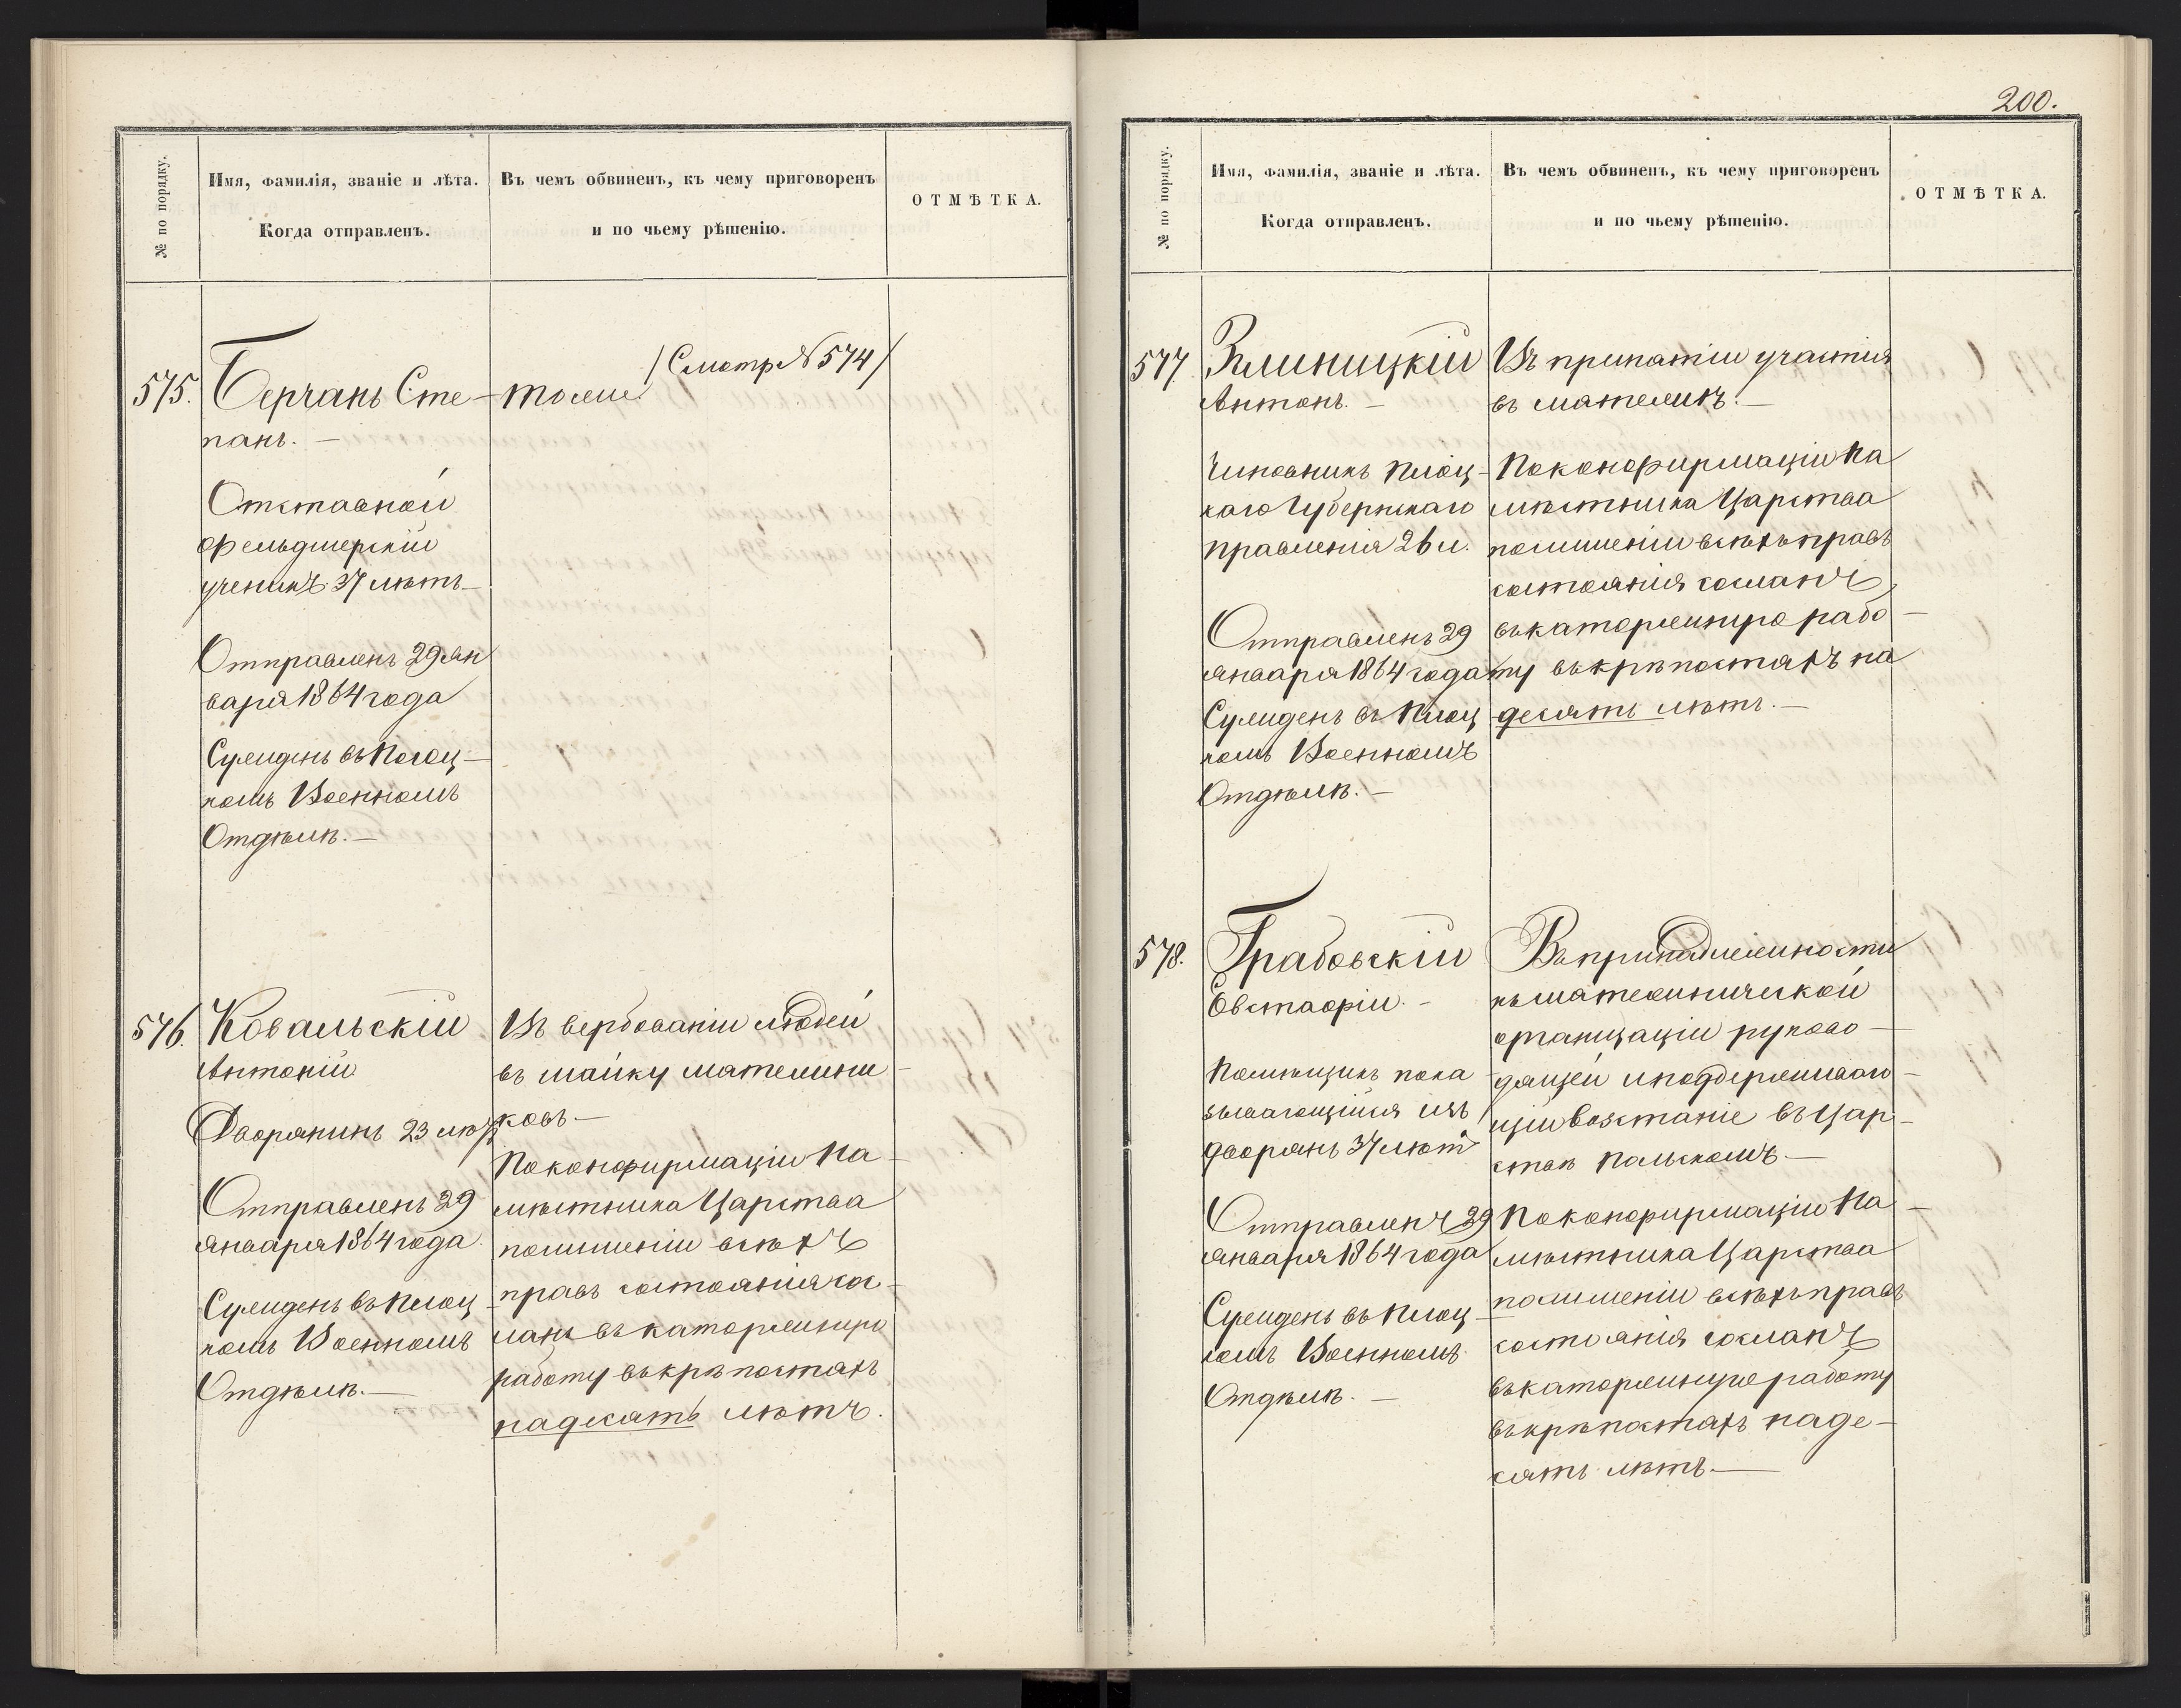 200.
№ по порядку.
Имя, фамилія, званіе и лѣта.
Когда отправленъ.
Въ чемъ обвиненъ, къ чему приговоренъ
и по чьему рѣшенію.
ОТМѢТКА.
575.
Берчанъ Сте-
панъ. —
Отставной
фельдшерскій
ученикъ 37 лѣтъ —
Отправленъ 29 Ян
варя 1864 года
Сужденъ въ Плоц-
комъ Военномъ
Отдѣлѣ. —
/Смотр № 574/
тоже
576.
Ковальскій
Антоній
Дворянинъ 23 лѣтъ
Отправленъ 29
Января 1864 года.
Сужденъ въ Плоц
комъ Военномъ
Отдѣлѣ. —
Въ вербованіи людей
въ шайку мятежни-
ковъ. —
По конфирмаціи На-
мѣстника Царства
по лишеніи всѣхъ
правъ состоянія со-
ланъ въ каторжную
работу въ крѣпостяхъ
на десять лѣтъ.
№ по порядку.
Имя, фамилія, званіе и лѣта.
Когда отправленъ.
Въ чемъ обвиненъ, къ чему приговоренъ
и по чьему рѣшенію.
ОТМѢТКА.
577.
Антонъ. —
Чиновникъ Плоц-
каго Губернскаго
Правленія 26 л.
Отправленъ 29
Января 1864 года
Сужденъ въ Плоц
комъ Военномъ
Отдѣлѣ. —
Въ принятіи участія
въ мятежѣ. —
По конфирмаціи На
мѣстника Царства
по лишеніи всѣхъ правъ
состоянія сосланъ
въ каторжную рабо-
ту въ крѣпостяхъ на
десять лѣтъ. —
578.
Грабовскій
Евстафій. —
Помѣщикъ пока
зывающійся изъ
дворянъ 37 лѣтъ
Отправленъ 29
Января 1864 года
Сужденъ въ Плоц-
комъ Военномъ
Отдѣлѣ. —
Въ принадлежности
къ мятежнической
организаціи руково-
дящей и поддерживаю-
щій возстаніе въ Цар-
ствѣ Польскомъ —
По конфирмаціи На-
мѣстника Царства
по лишеніи всѣхъ правъ
состоянія сосланъ
въ каторжную работу
въ крѣпостяхъ на де-
сять лѣтъ. —